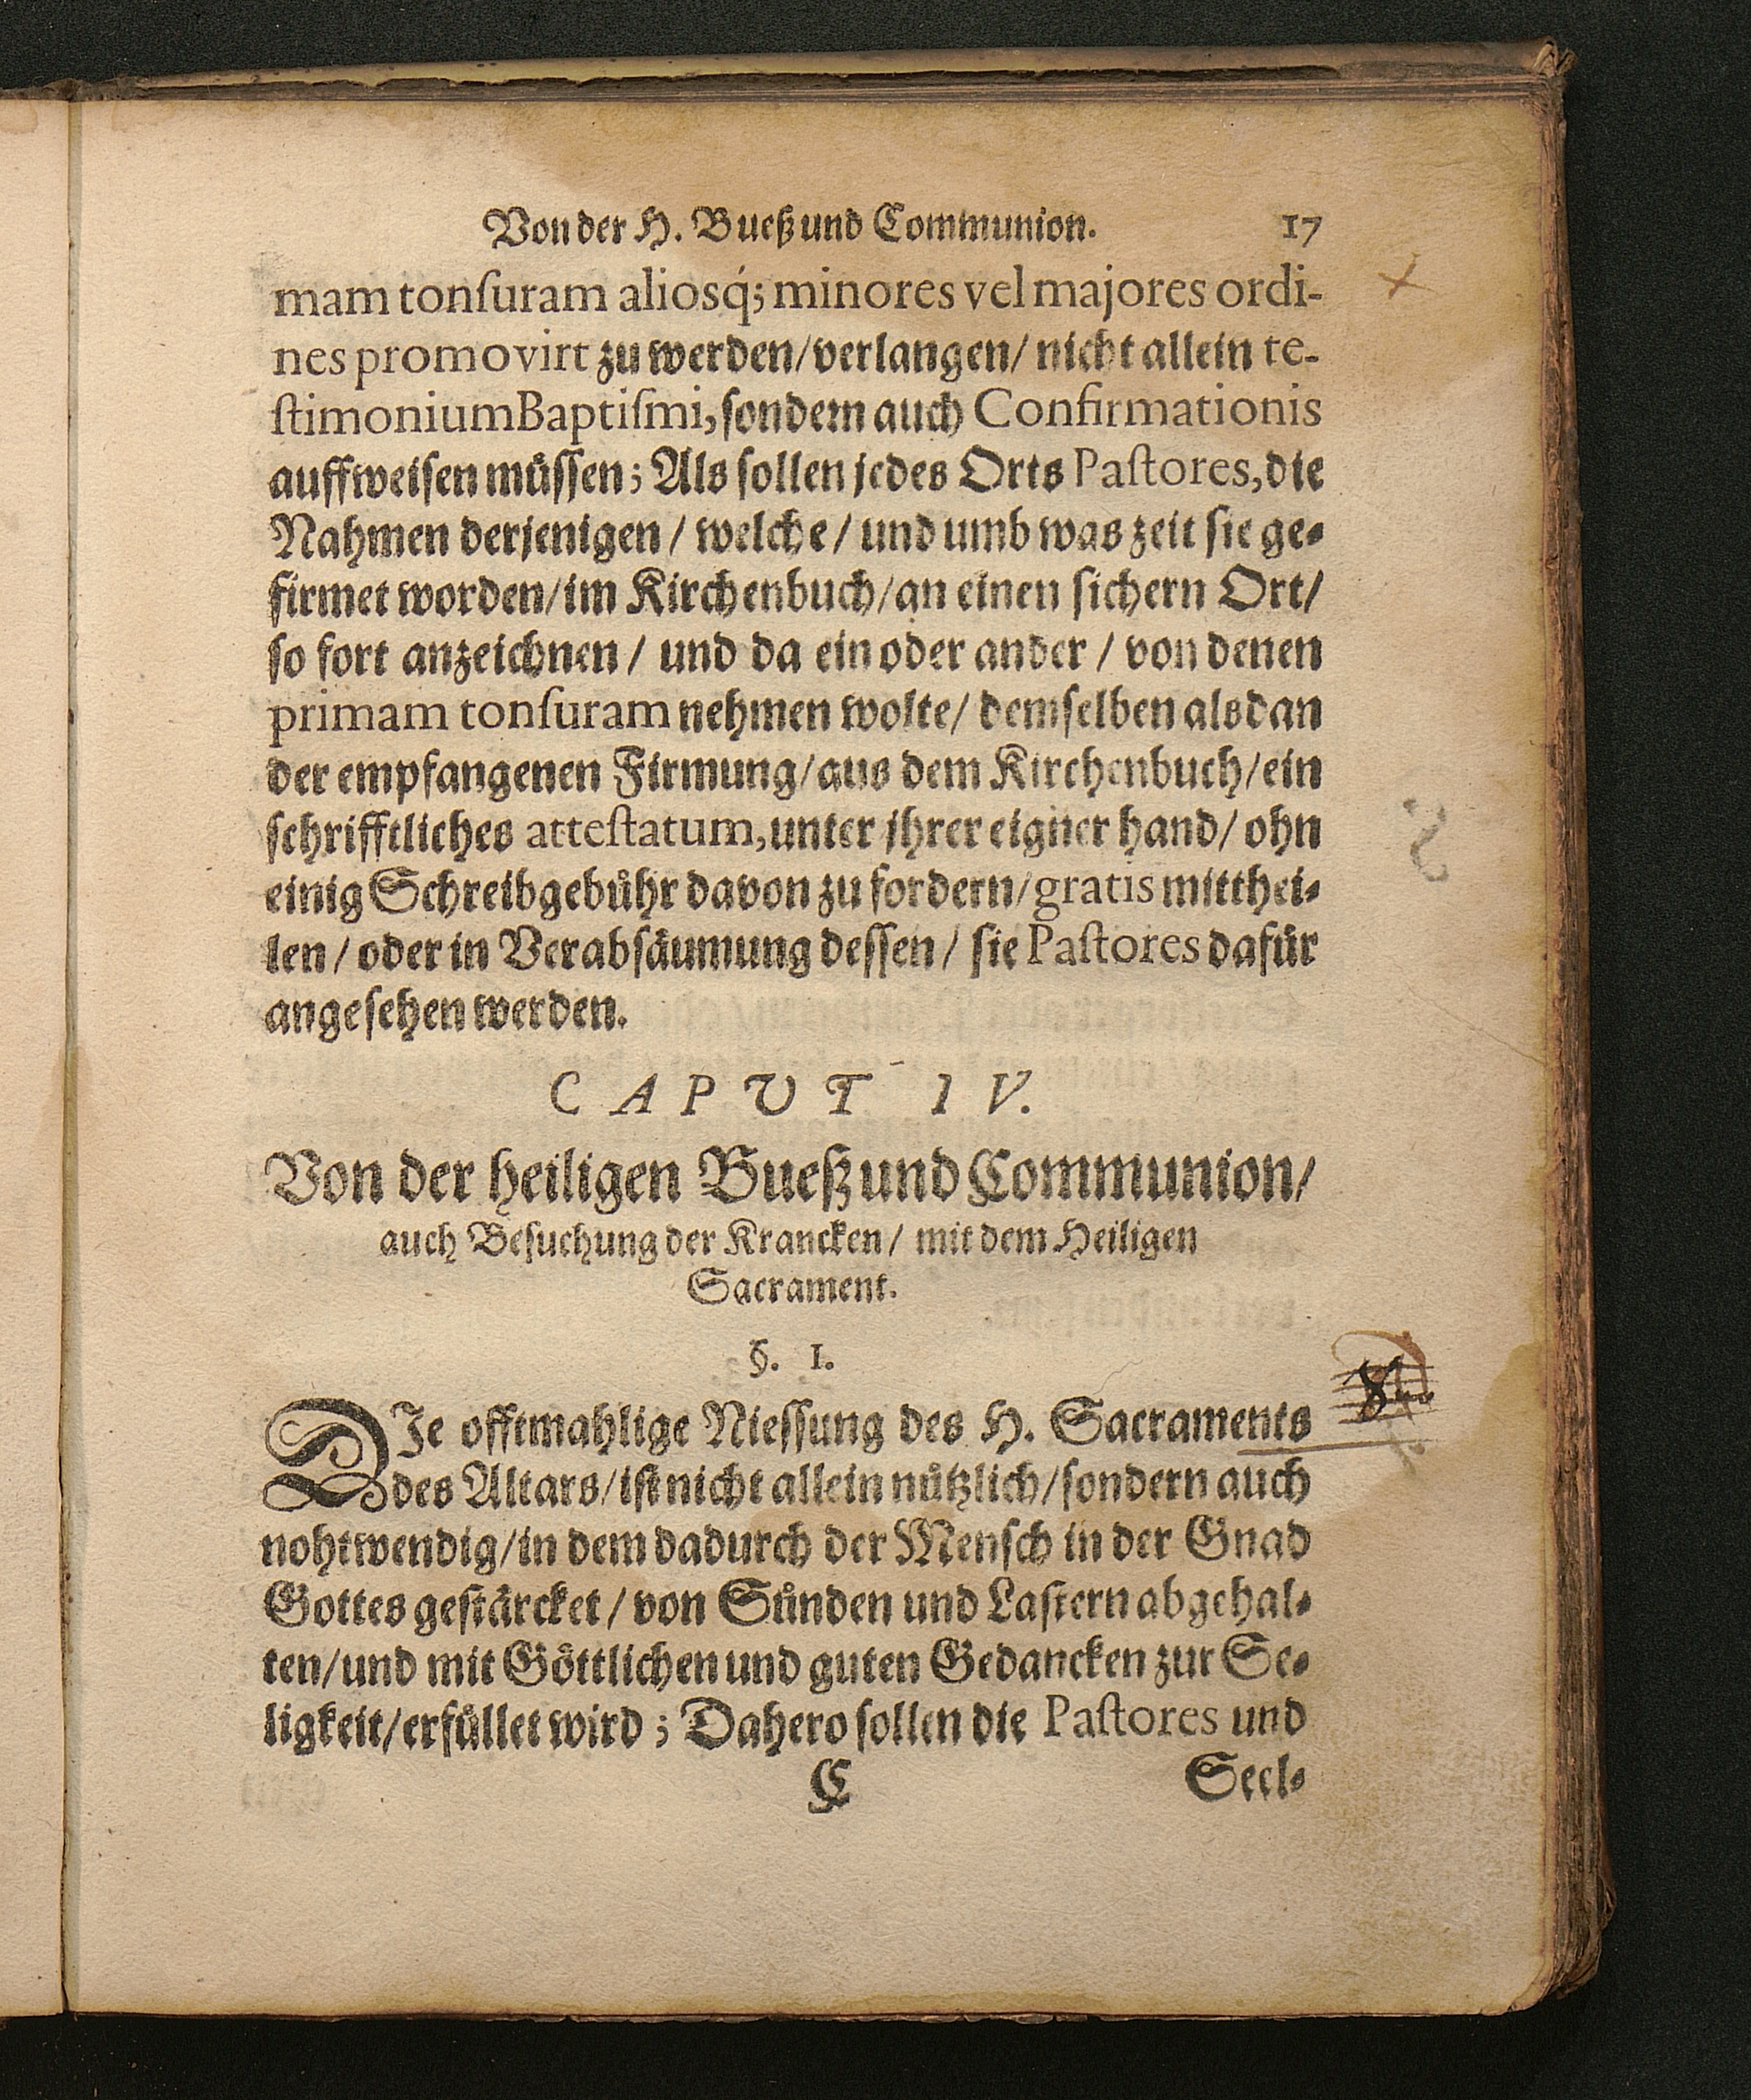 Von der H. Bueß und Communion. 17
mam tonſuram aliosq́; minores vel majores ordi-
nes promovirt zu werden/ verlangen/ nicht allein te-
ſtimonium Baptiſmi, ſondern auch Confirmationis
auffweiſen müſſen; Als ſollen jedes Orts Paſtores, die
Nahmen derjenigen / welche / und umb was zeit ſie ge-
firmet worden/ im Kirchenbuch/ an einen ſichern Ort/
ſo fort anzeichnen / und da ein oder ander / von denen
primam tonſuram nehmen wolte/ demſelben alsdan
der empfangenen Firmung/ aus dem Kirchenbuch/ ein
ſchrifftliches atteſtatum, unter jhrer eigner hand/ ohn
einig Schreibgebühr davon zu fordern/ gratis mitthei-
len / oder in Verabſäumung deſſen / ſie Paſtores dafür
angeſehen werden.
CAPUT IV.
Von der heiligen Bueß und Communion/
auch Beſuchung der Krancken / mit dem Heiligen
Sacrament.
§. 1.
DIe offtmahlige Nieſſung des H. Sacraments
des Altars/ iſt nicht allein nützlich/ ſondern auch
nohtwendig/ in dem dadurch der Menſch in der Gnad
Gottes geſtärcket / von Sünden und Laſtern abgehal-
ten/ und mit Göttlichen und guten Gedancken zur Se-
ligkeit/ erfüllet wird ; Dahero ſollen die Paſtores und
C Seel-